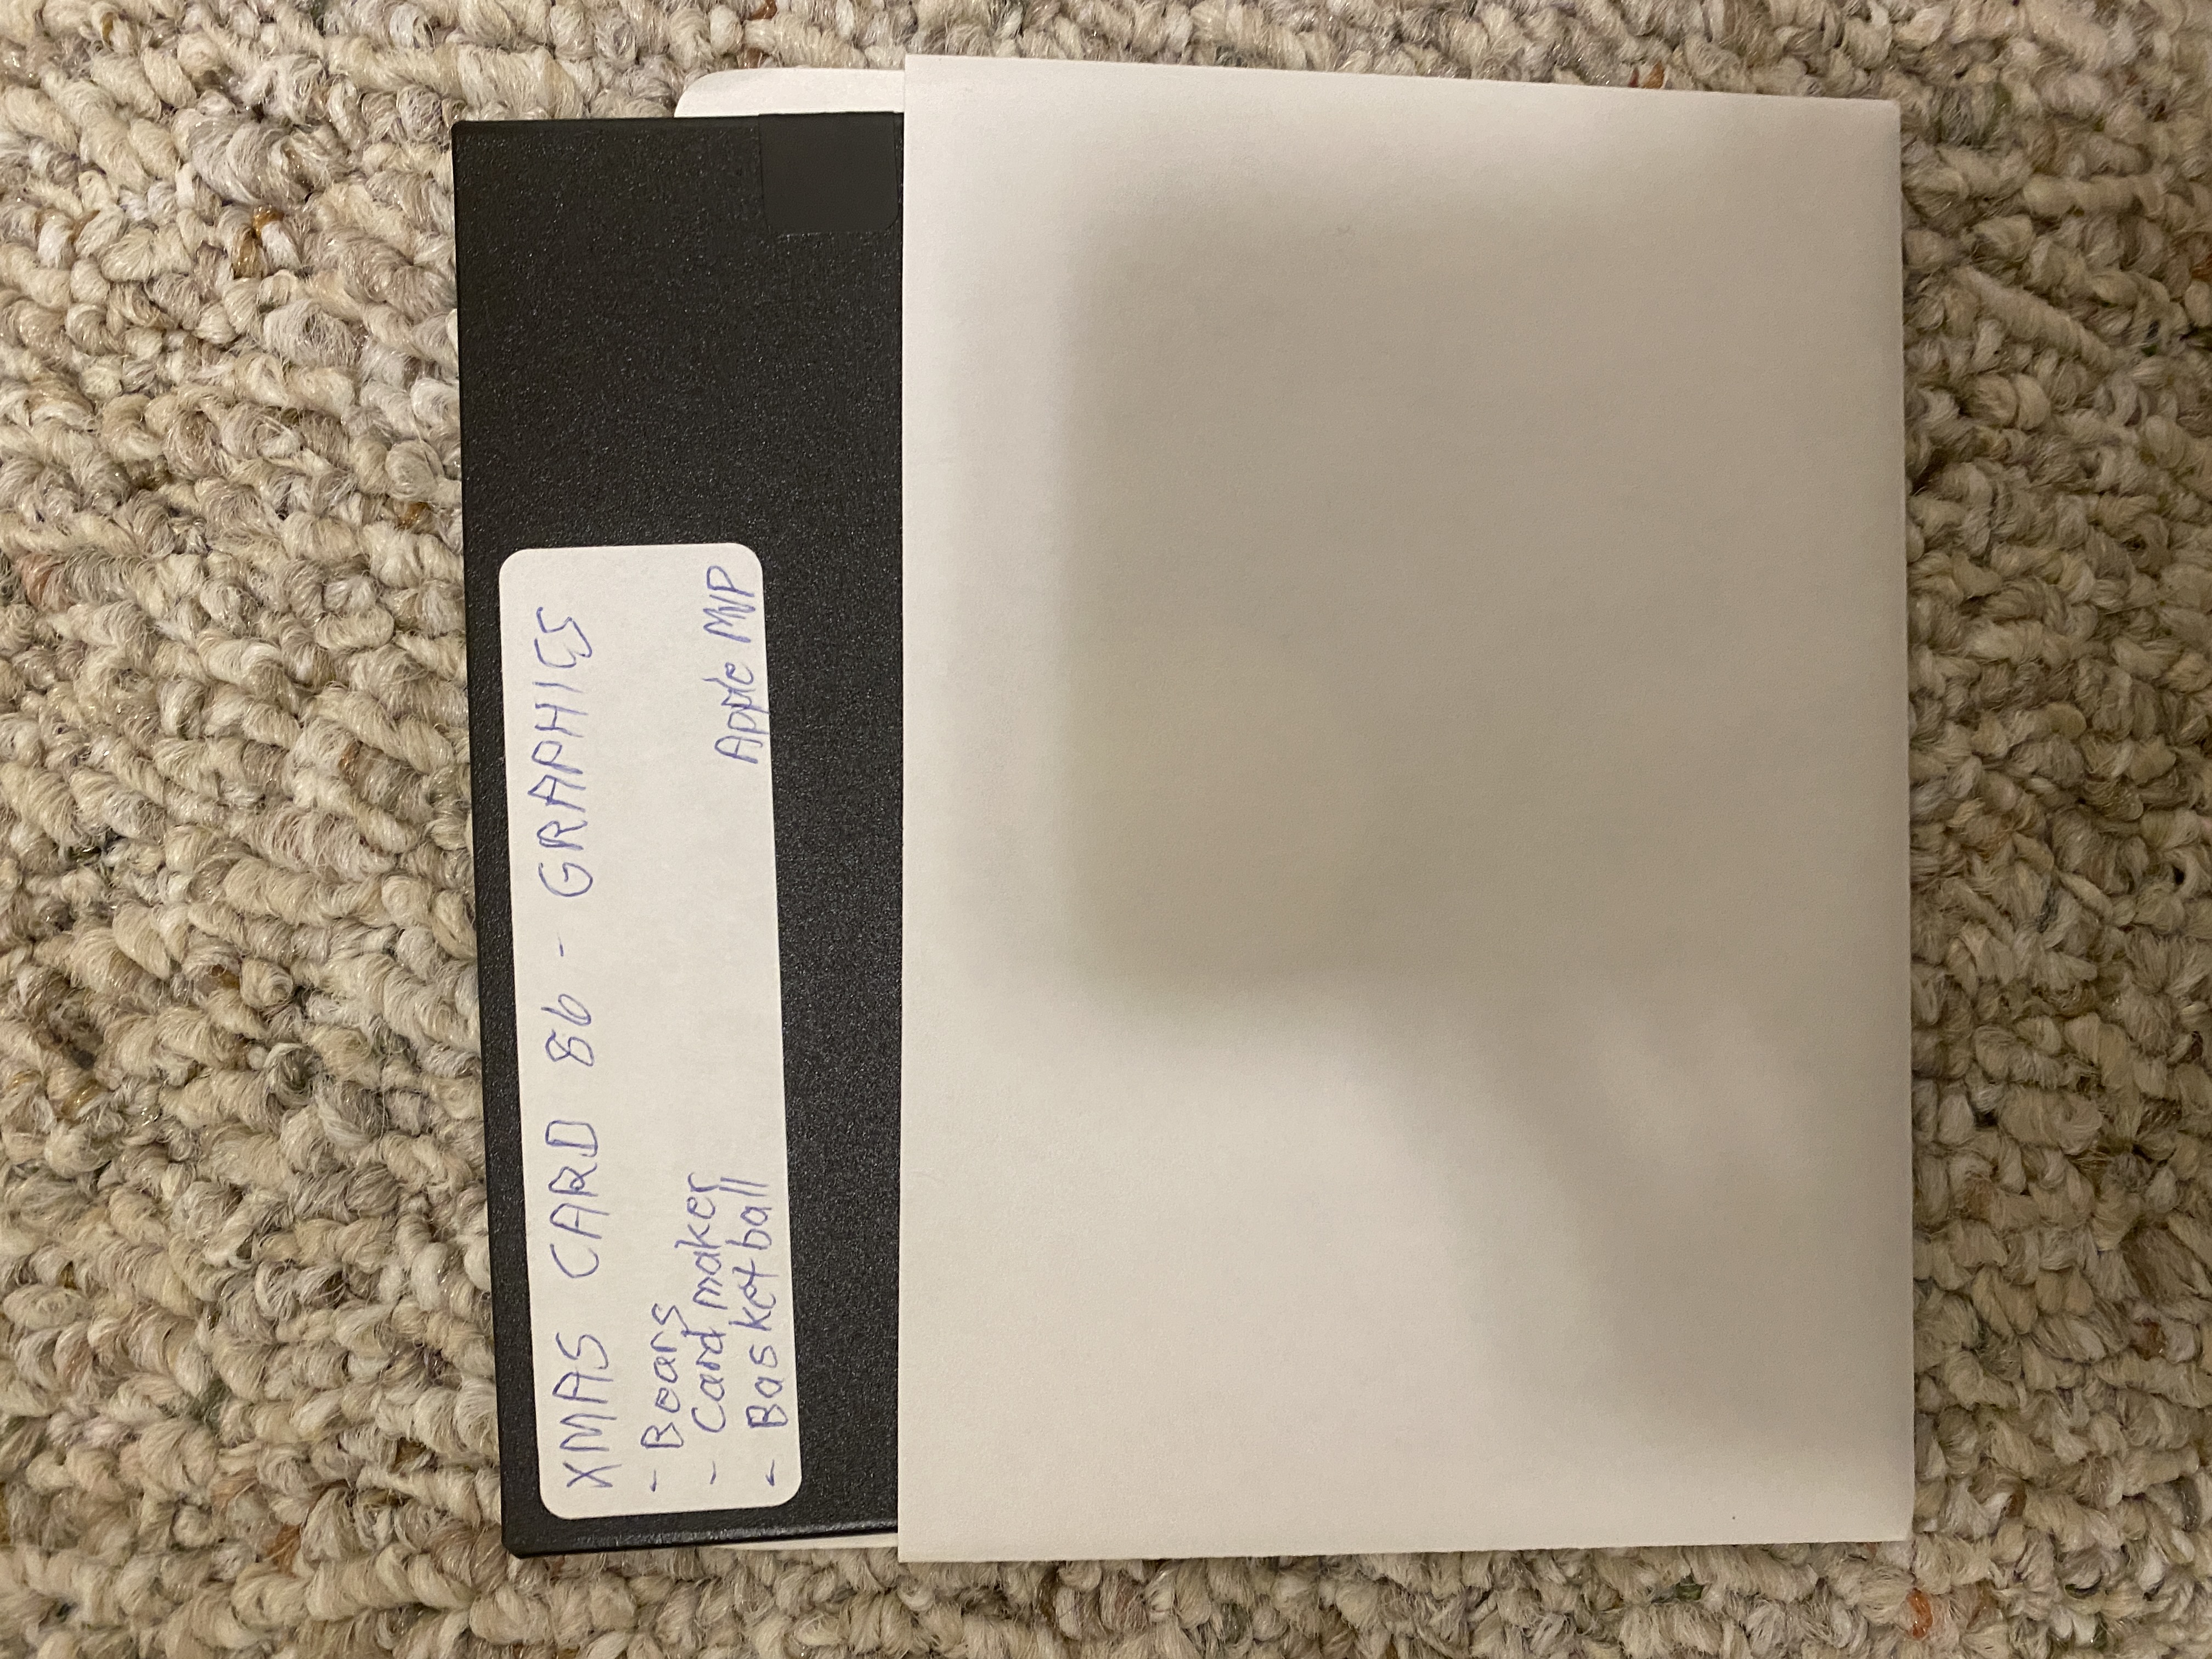 XMAS CARD 86 - GRAPHICS
- Bears
- Card maker
- Basketball
Apple MVP